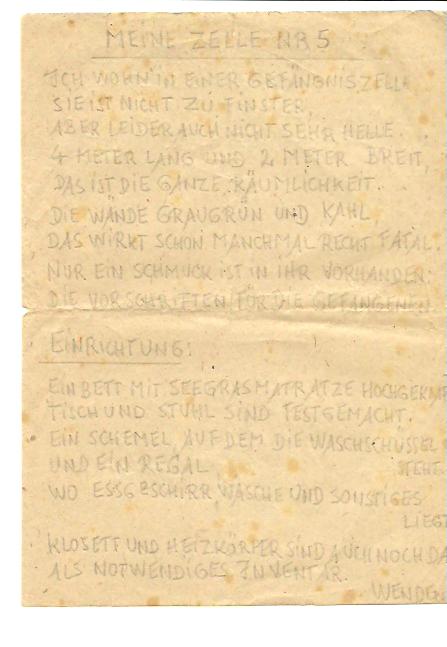 MEINE ZELLE NR 5
ICH WOHN' IN EINER GEFÄNGNISZELLE
SIE IST NICHT ZU FINSTER,
ABER LEIDER AUCH NICHT SEHR HELLE.
4 METER LANG UND 2 METER BREIT,
DAS IST DIE GANZE RÄUMLICHKEIT.
DIE WÄNDE GRAUGRÜN UND KAHL,
DAS WIRKT SCHON MANCHMAL RECHT FATAL.
NUR EIN SCHMUCK IST IN IHR VORHANDEN:
DIE VORSCHRIFTEN FÜR DIE GEFANGENEN
EINRICHTUNG:
EIN BETT MIT SEEGRASMATRATZE
TISCH UND STUHL SIND FESTGEMACHT.
EIN SCHEMEL, AUF DEM DIE WASCHSCHÜSSEL
STEHT
UND EIN REGAL,
WO ESSGESCHIRR, WÄSCHE UND SONSTIGES
LIEGT
KLOSETT UND HEIZKÖRPER SIND AUCH NOCH DA
ALS NOTWENDIGES INVENTAR.
WENDEN